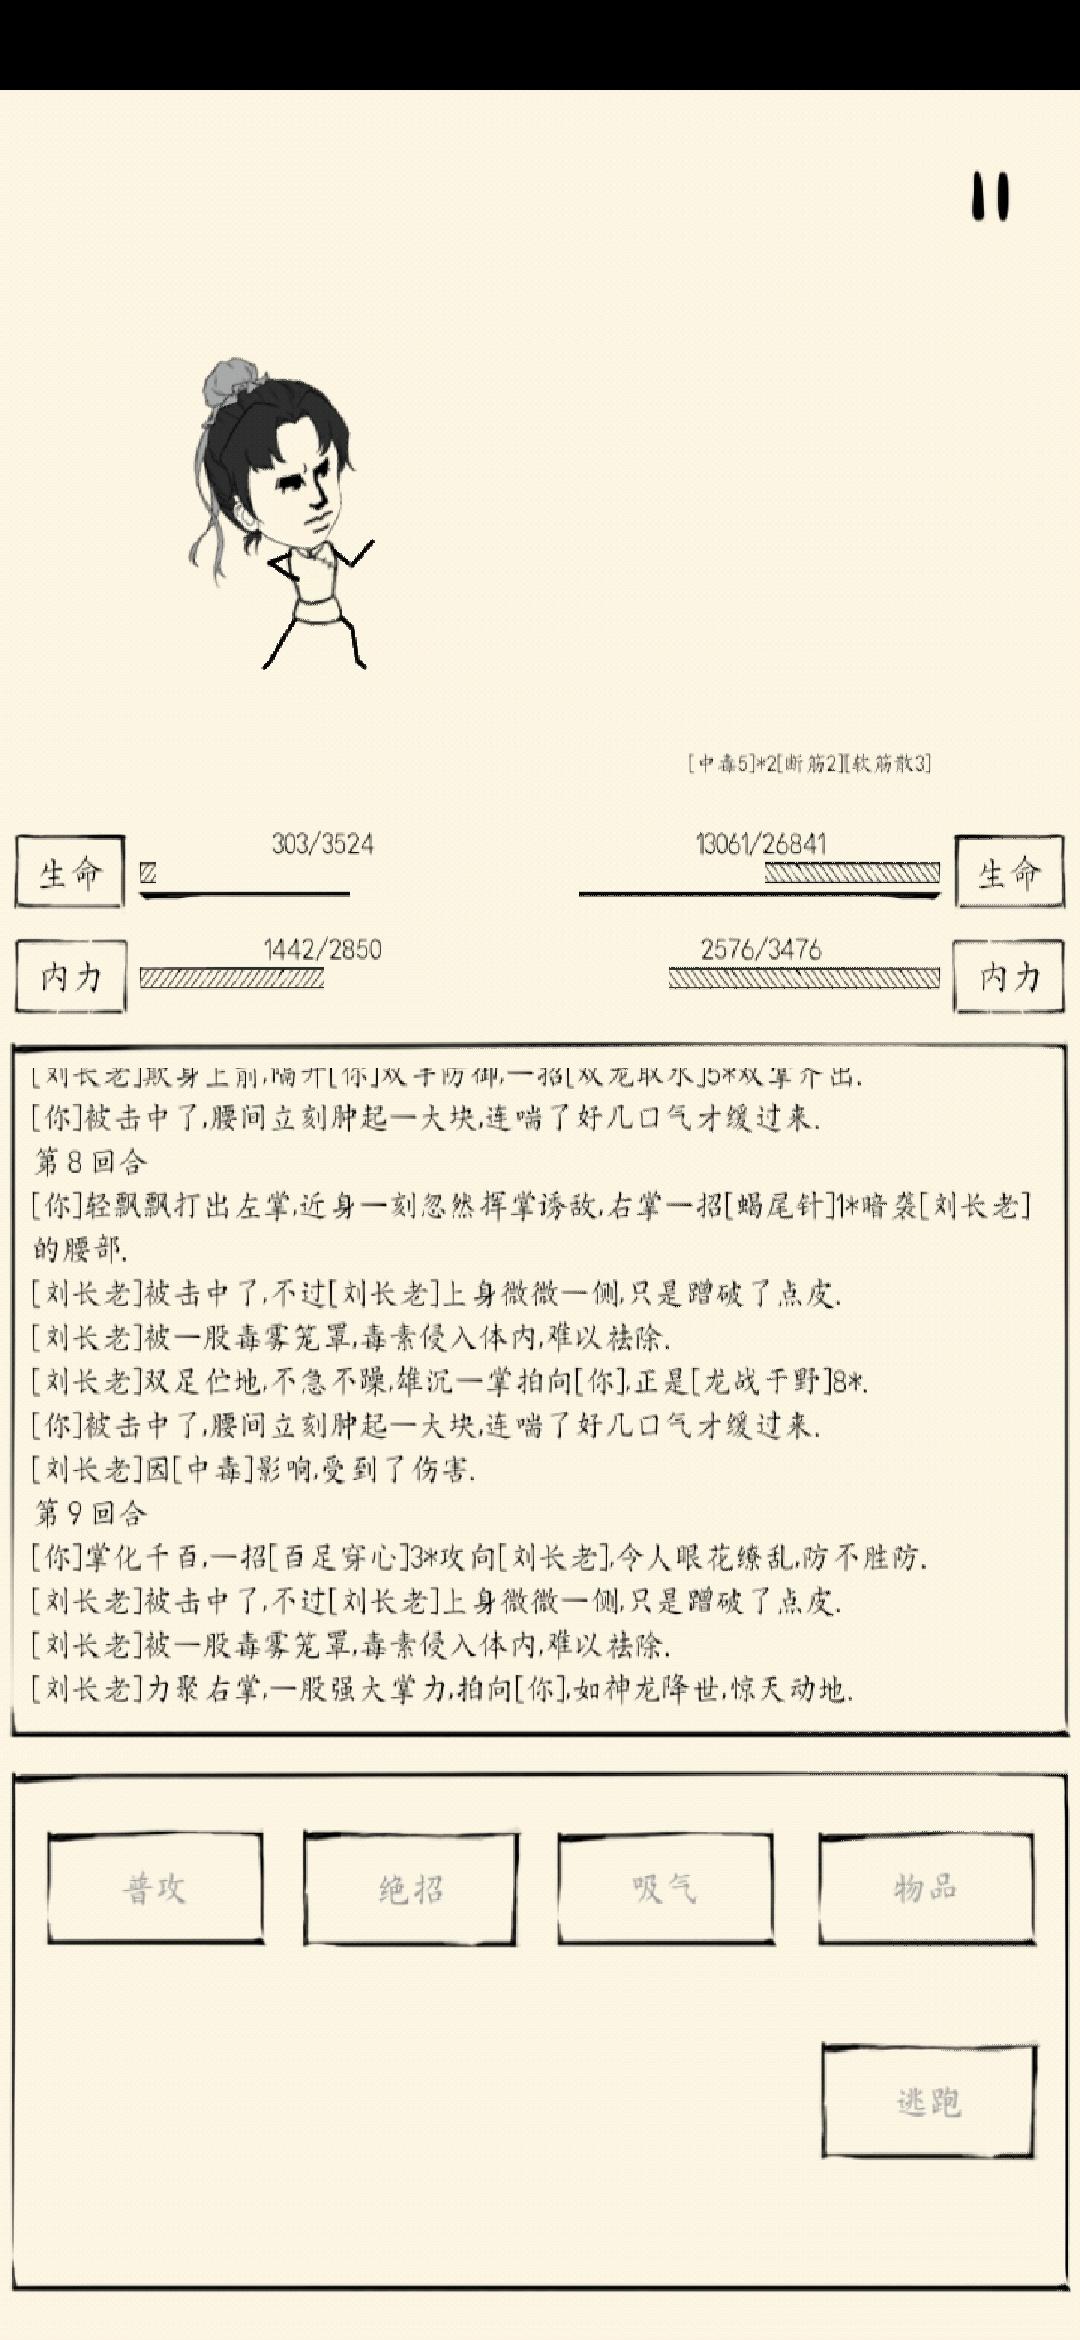 [中毒5]*2[断筋2][软筋散3]
303/3524
13061/26841
生命
生命
1442/2850
2576/3476
内力
内力
[刘长老]欺身上前,隔开[你]双手防御,一招[双龙取水]5*双掌齐出.
[你]被击中了,腰间立刻肿起一大块,连喘了好几口气才缓过来.
第8回合
[你]轻飘飘打出左掌,近身一刻忽然挥掌诱敌,右掌一招[蝎尾针]1*暗袭[刘长老]
的腰部.
[刘长老]被击中了,不过[刘长老]上身微微一侧,只是蹭破了点皮.
[刘长老]被一股毒雾笼罩,毒素侵入体内,难以祛除.
[刘长老]双足伫地,不急不躁,雄沉一掌拍向[你],正是[龙战于野]8*.
[你]被击中了,腰间立刻肿起一大块,连喘了好几口气才缓过来.
[刘长老]因[中毒]影响,受到了伤害.
第9回合
[你]掌化千百,一招[百足穿心]3*攻向[刘长老],令人眼花缭乱,防不胜防.
[刘长老]被击中了,不过[刘长老]上身微微一侧,只是蹭破了点皮.
[刘长老]被一股毒雾笼罩,毒素侵入体内,难以祛除.
[刘长老]力聚右掌,一股强大掌力,拍向[你],如神龙降世,惊天动地.
普攻
绝招
吸气
物品
逃跑